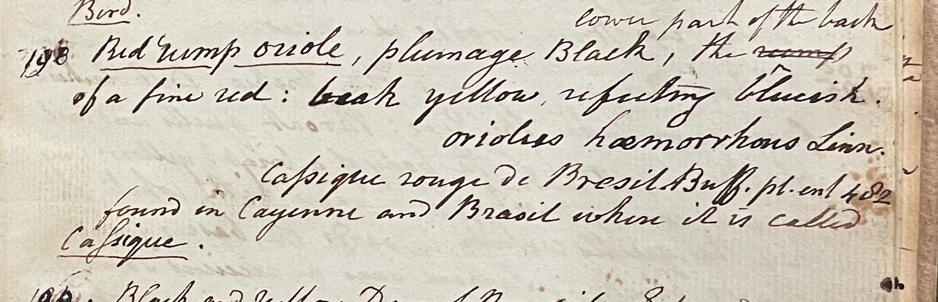 Bird.
lower part of the back
198 Red rump oriole, plumage Black, the rump
of a fine red: beak yellow, refecting blueish.
oriolus hæmorrhous Linn.
Cassique rouge de Bresil. Buff. pl. enl 482
found in Cayenne and Brasil where it is called
Cassique.
Black and yellow